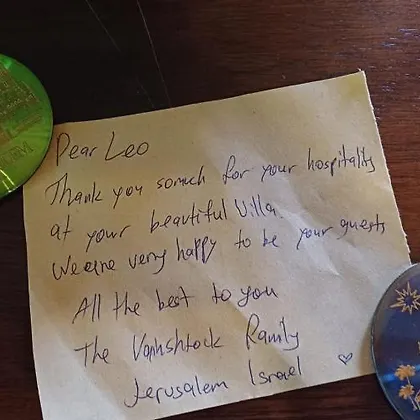 Dear Leo
Thank you somuch for your hospitality
at your beautiful Villa.
We were very happy to be your guests
All the best to you
The Vainshtock Family
Jerusalem Israel ♡